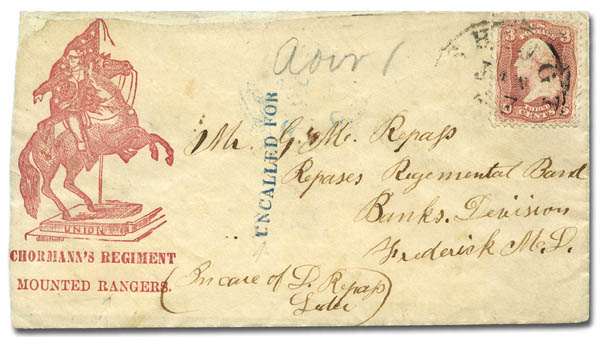 UNION
CHORMANN'S REGIMENT
MOUNTED RANGERS.
UNCALLED FOR
3 3
CENTS
Mr. G. M. Repass
Repases Regemental Band
Banks. Division
Frederick M.D.
(In care of D. Repass